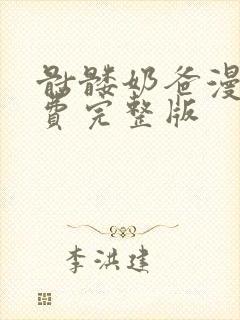 骷髅奶爸漫
费完整版
李洪建